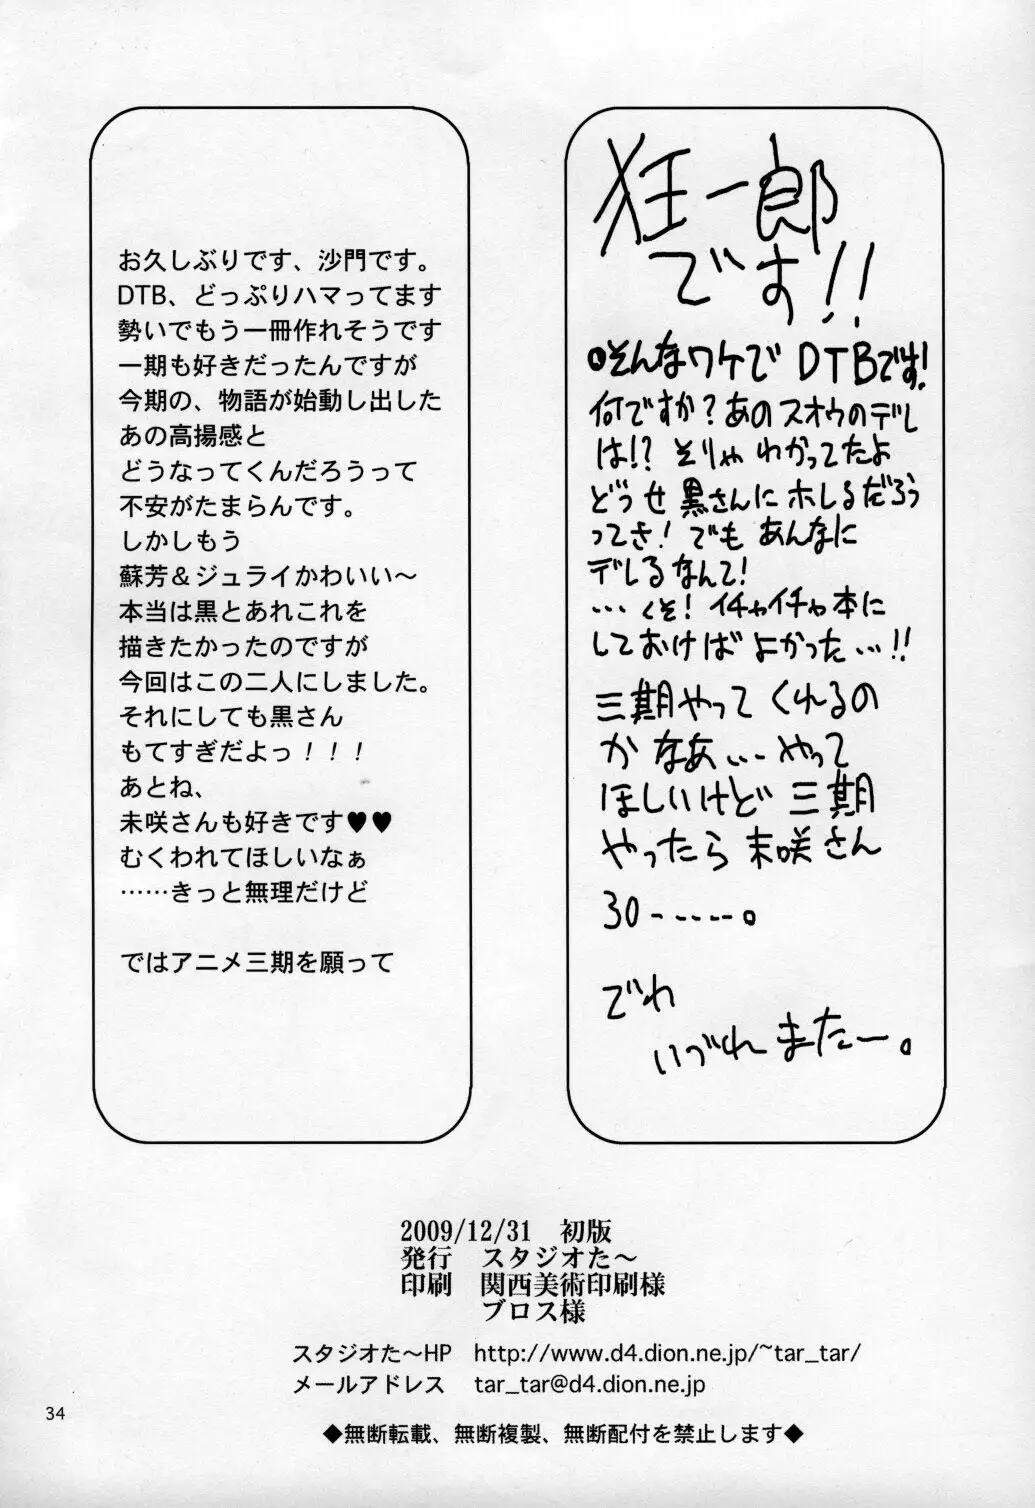 狂一郎
です!!
•そんなワケで DTBです!
何ですか?あのスオウのデレ
は!? そりゃ わかってたよ
どうせ 黒さんに ホレるだろう
ってさ! でも あんなに
デレるなんて!
…くそ! イチャイチャ本に
しておけば よかった…!!
三期やって くれるの
かなあ…やって
ほしいけど 三期
やったら 未咲さん
30-----。
でわ
いづれ またー。
お久しぶりです、沙門です。
DTB、どっぷりハマってます
勢いでもう一冊作れそうです
一期も好きだったんですが
今期の、物語が始動し出した
あの高揚感と
どうなってくんだろうって
不安がたまらんです。
しかしもう
蘇芳&ジュライかわいい〜
本当は黒とあれこれを
描きたかったのですが
今回はこの二人にしました。
それにしても黒さん
もてすぎだよっ!!!
あとね、
未咲さんも好きです♥♥
むくわれてほしいなぁ
……きっと無理だけど
ではアニメ三期を願って
2009/12/31 初版
発行 スタジオた〜
印刷 関西美術印刷様
ブロス様
スタジオた〜HP http://www.d4.dion.ne.jp/~tar_tar/
メールアドレス tar_tar@d4.dion.ne.jp
34
◆無断転載、無断複製、無断配付を禁止します◆